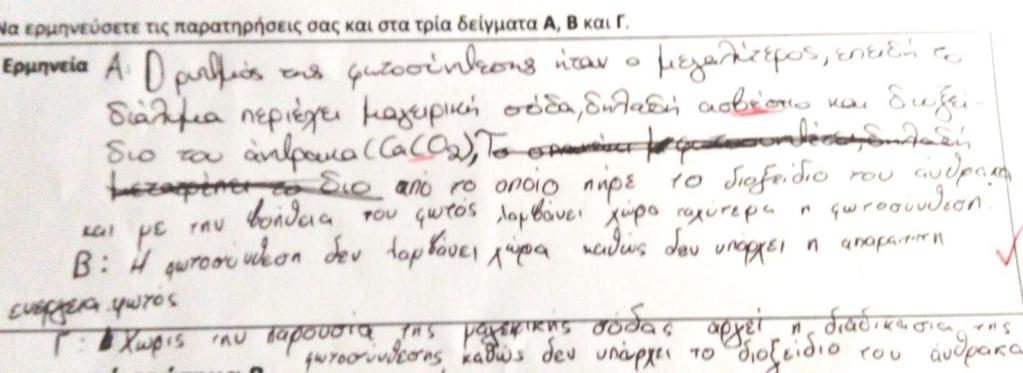 Να ερμηνεύσετε τις παρατηρήσεις σας και στα τρία δείγματα Α, Β και Γ.
Ερμηνεία Α: Ο ρυθμός της φωτοσύνθεσης ήταν ο μεγαλύτερος, επειδή το
διάλυμα περιέχει μαγειρική σόδα, δηλαδή ασβέστιο και διοξεί-
διο του άνθρακα (CaCO2), Το
διο από το οποίο πήρε το διοξείδιο του άνθρακα
και με την βοήθεια του φωτός λαμβάνει χώρα ταχύτερα η φωτοσύνθεση.
Β: Η φωτοσύνθεση δεν λαμβάνει χώρα καθώς δεν υπάρχει η απαραιτητη
ενέργεια φωτός
Γ: Χωρις την παρουσία της μαγειρικής σόδας αργεί η διαδικασια της
φωτοσυνθεσης καθώς δεν υπάρχει το διοξείδιο του άνθρακα